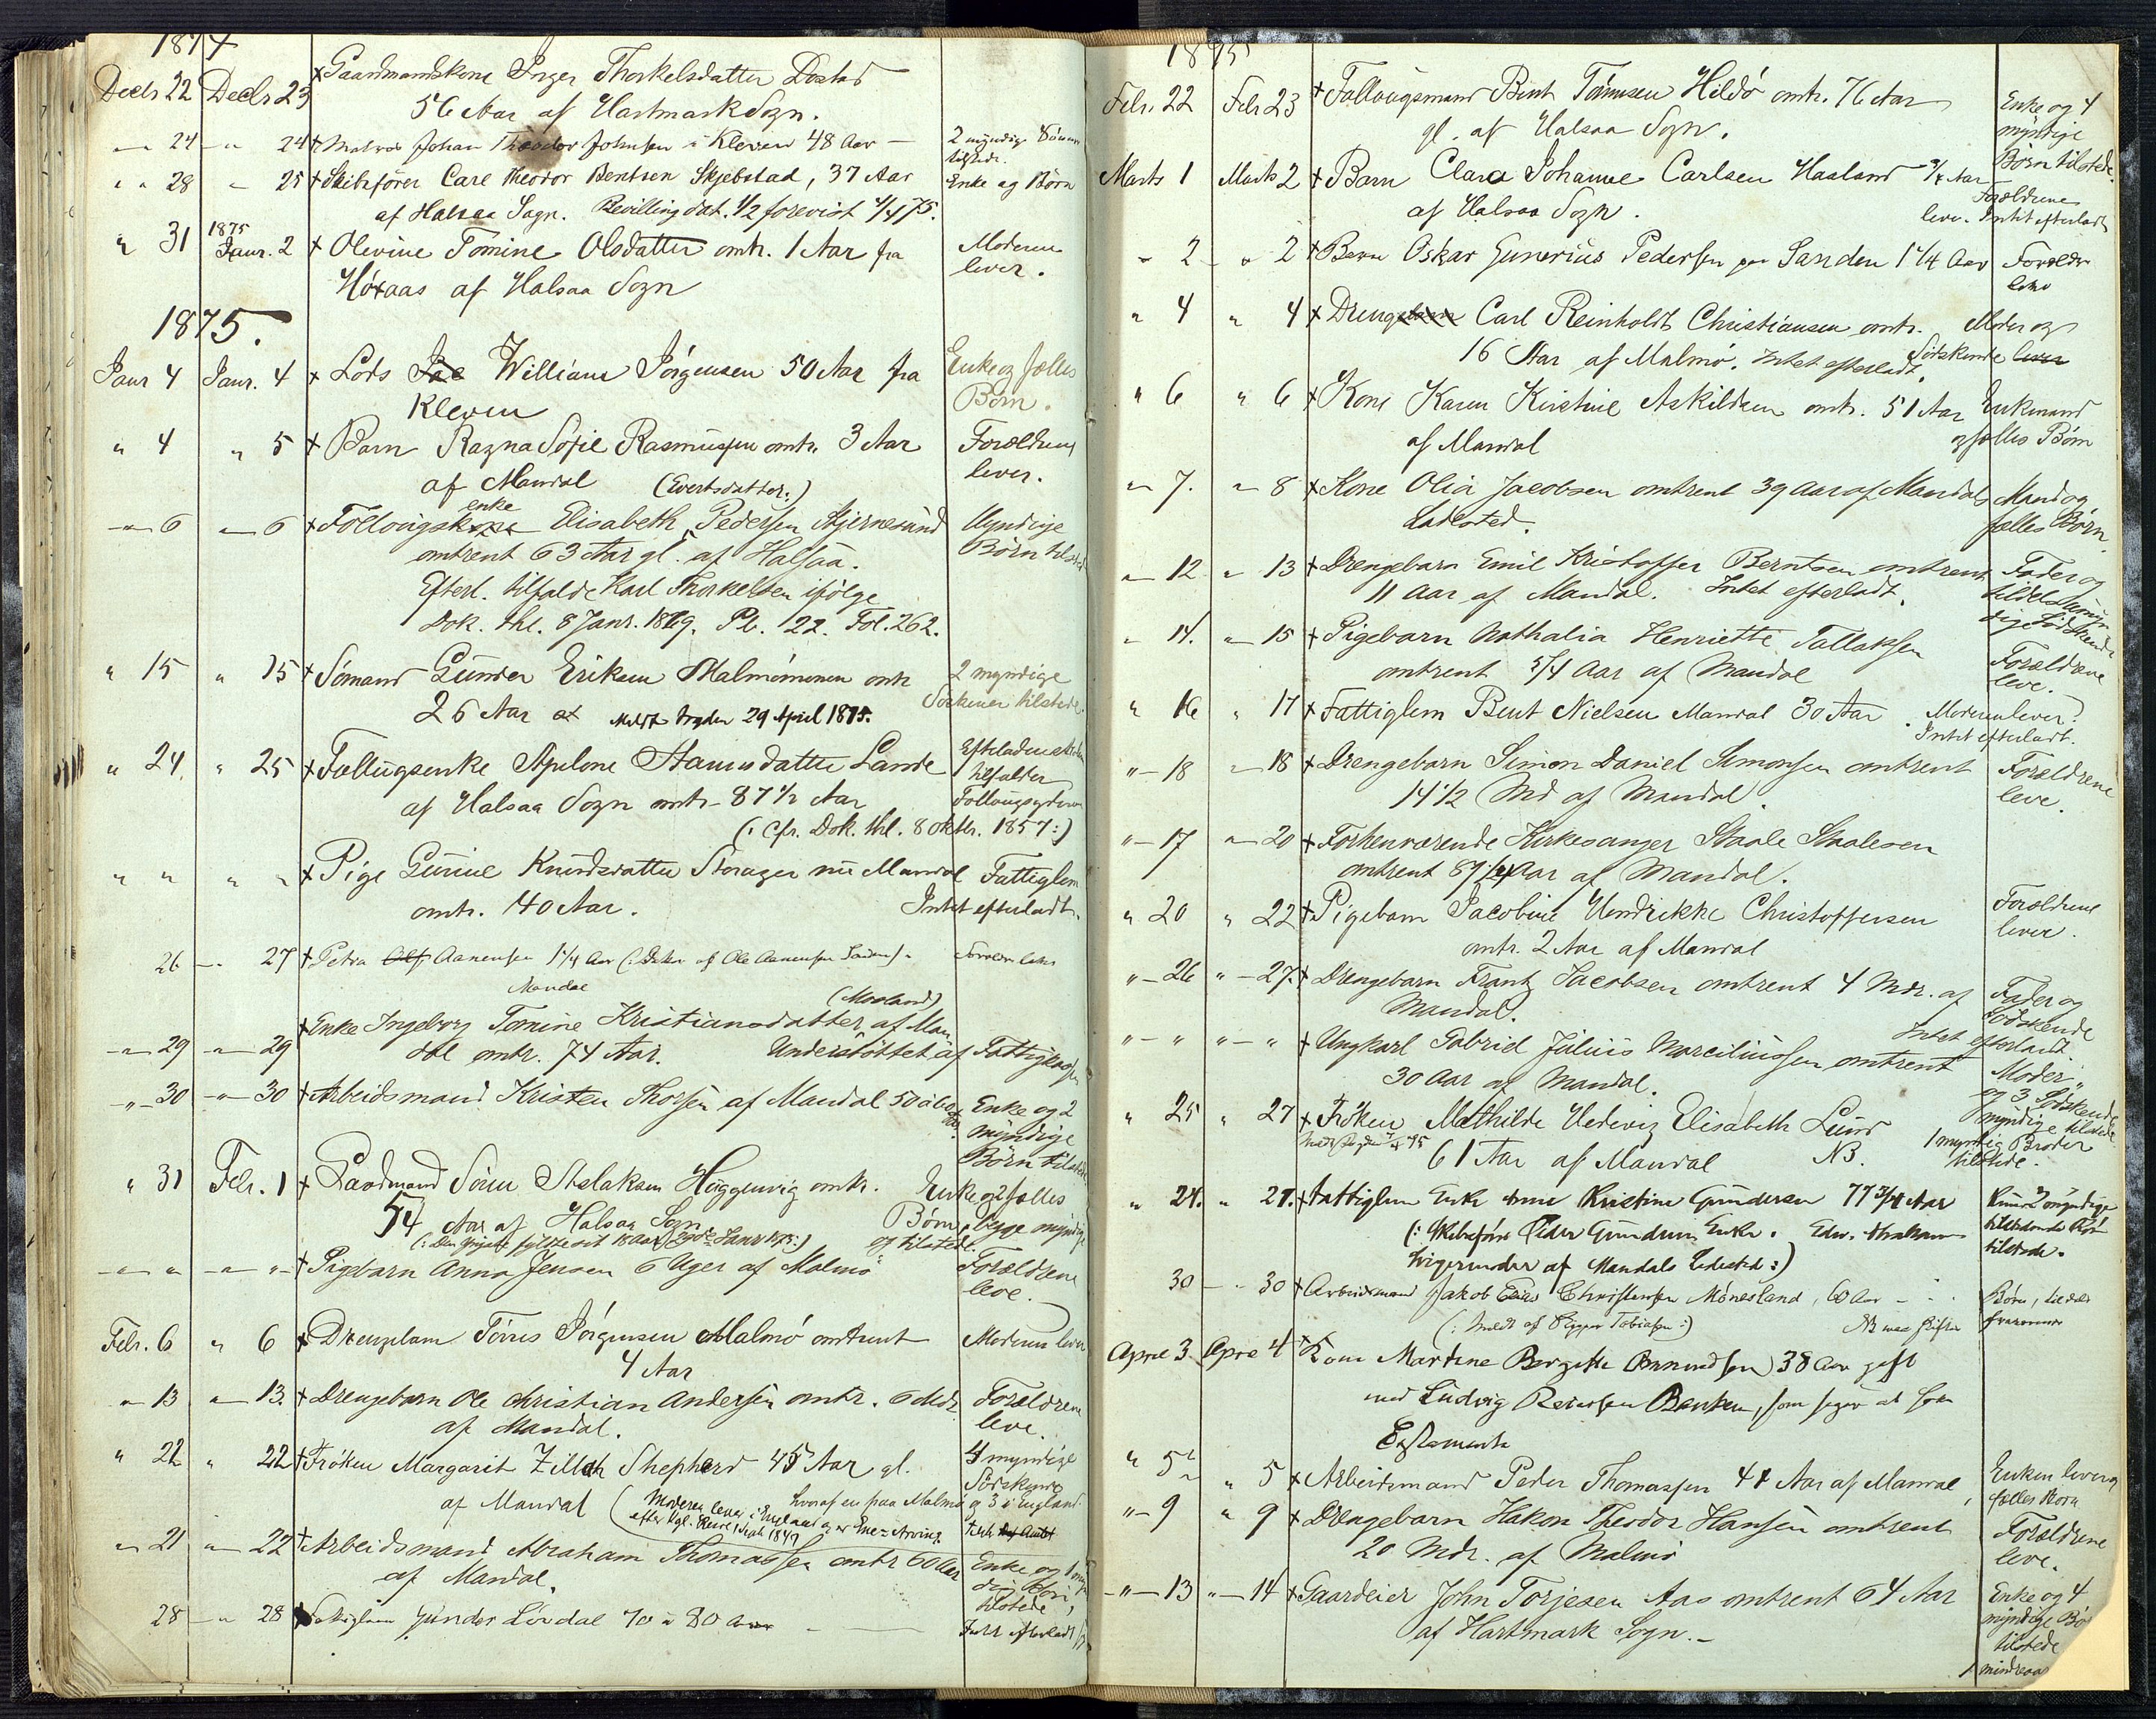 1874
Decbr 22 Decbr 23 × Gaardmandskone Inger Thorkelsdatter Dostad
56 Aar af Hartmark Sogn.
" 24 " 24 × Matros Johan Theodor Johnsen i Kleven 48 Aar — 2 myndige Sönner
tilstede.
" 28 " 25 × Skibsförer Carl Theodor Berntsen Skjebstad, 37 Aar Enke og Börn
af Halsaa Sogn. Bevilling dat. 1/2 forevist 4/4 75.
" 31 1875 Janr. 2 × Olevine Tomine Olsdatter omtr. 1 Aar fra Moderen
Höxaas af Halsaa Sogn lever.
1875.
Janr 4 Janr. 4 × Lods William Jörgensen 50 Aar fra Enke og fælles
Kleven Börn.
" 4 " 5 × Barn Ragna Sofie Rasmussen omtr. 3 Aar Forældrene
af Mandal (Evertsdatter:) lever.
" 6 " 6 × Föllougskone enke Elisabeth Pedersen Stjernesund Myndige
omtrent 63 Aar gl. af Halsaa. Börn tilstede
Efterl. tilfalde Karl Thorkelsen ifölge
Dok. thl. 8 Janr. 1869. Pb. 22. Fol. 262.
" 15 " 15 × Sömand Gunder Eriksen Malmömonen omtr 2 myndige
26 Aar Meldt Byfdn 29 April 1875. Söskener tilstede.
" 24 " 25 × Föllugsenke Apelone Aanensdatter Lande Efterladenskaben
af Halsaa Sogn omtr. 87 1/2 Aar tilfalder
Föllougsyderen
(: cfr. Dok. thl. 8 Oktbr. 1857:)
" " " " × Pige Gunnil Knudsdatter Storager nu Mandal Fattiglem
omtr. 40 Aar. Intet efterladt.
26 " 27 × Petra Aanensen 1 1/4 Aar (: Datter af Ole Aanensen Sanden) Forældre lever
Mandal
(Moland)
" 29 " 29 × Enke Ingeborg Tomine Kristiansdatter af Man
dal omtr. 74 Aar. Understöttet af Fattigkassen
" 30 " 30 × Arbeidsmand Kristen Thorsen af Mandal 50 à 60 Aar. Enke og 2
myndige
Börn tilstede
" 31 Febr. 1 × Gaardmand Sören Aslaksen Höggenvig omtr. Enke og 2 fælles
54 Aar af Halsaa Sogn Börn, begge myndige
(: Den yngste fyldte sit 18 Aar 29de Janr 1875:) og tilstede.
" " " " × Pigebarn Anna Jensen 6 Uger af Malmö Forældrene
leve.
Febr. 6 " 6 × Drengebarn Törres Jörgensen Malmö omtrent Moderen lever
4 Aar
" 13 " 13. × Drengebarn Ole Christian Andersen omtr. 6 Mdr. Forældrene
af Mandal. leve.
" 22 " 22 × Fröken Margarit Zillah Shepherd 45 Aar gl. 4 myndige
Södskende
af Mandal hvoraf en paa Malmö og 3 i England
(Moderen lever i England og er Ene-Arving
efter kgl. Resol. 1 Septbr 1849
" 21 " 22 × Arbeidsmand Abraham Thomassen omtr 60 Aar Enke og 1 myn
af Mandal. dig Börn,
tilstede
28 " 28 × Fattiglem Gunder Lindal 70 à 80 Aar — Intet efterladt
1875
Febr. 22 Febr 23 × Föllougsmand Bent Tönnesen Hildö omtr. 76 Aar Enke og 4
gl. af Halsaa Sogn. myndige
Börn tilstede.
Marts 1 Marts 2 × Barn Clara Johanne Carlsen Haaland 3/4 Aar Forældrene
af Halsaa Sogn. leve. Intet efterladt
" 2 " 2 × Barn Oskar Gunerius Pedersen paa Sanden 1 1/4 Aar Forældre
leve
" 4 " 4 × Drengebarn Carl Reinholdt Christiansen omtr. Moder og
16 Aar af Malmö. Intet efterladt. Södskende lever
" 6 " 6 × Kone Karen Kirstine Askildsen omtr. 51 Aar Enkemand
af Mandal og fælles Börn
" 7. " 8 × Kone Olia Jacobsen omtrent 39 Aar af Mandals Mand og
Ladested. fælles Börn.
" 12 " 13 × Drengebarn Emil Kristoffer Berntsen omtrent Fader og
11 Aar af Mandal. Intet efterladt. tildels umyn
dig Södskende
" 14. " 15 × Pigebarn Nathalia Henriette Tallaksen
omtrent 5/4 Aar af Mandal Forældrene
leve.
" 16 " 17 × Fattiglem Bent Nielsen Mandal 30 Aar. Moderen lever.
Intet efterladt.
" 18 " 18 × Drengebarn Simon Daniel Simonsen omtrent Forældrene
14 1/2 Md af Mandal. leve.
" 17 " 20 × Forhenværende Kirkesanger Staale Staalesen
omtrent 89 1/4 Aar af Mandal.
" 20 " 22 × Pigebarn Jacobine Hendrikke Christoffersen Forældrene
omtr. 2 Aar af Mandal lever.
" 26 " 27. × Drengebarn Frantz Jacobsen omtrent 4 Mdr. af Fader og
Mandal. Södskende
Intet efterladt.
" " " " × Ungkarl Gabriel Julius Marciliussen omtrent Moder
30 Aar af Mandal. og 3 Södskende
myndige tilstede
" 25 " 27 × Fröken Mathilde Hedevig Elisabeth Lund 1 myndig Broder
61 Aar af Mandal NB. tilstede.
" 24. " 27. × Fattiglem Enke Anne Kristine Gundersen 77 3/4 Aar Kuns 2 myndige
(: Skibsförer Peder Gundersens Enke. Edw. Abrahams
tilstede.
Svigermoder af Mandals Ladested:)
30 " 30 × Arbeidsmand Jakob Elias Christensen Mönesland, 60 Aar Börn,
(: meldt af Skipper Tobiasen:)
April 3 April 4 × Kone Martine Bergitte Omundsen 38 Aar gift
med Ludvig Reiersen Banken, som siger at have
Testamente
" 5 " 5 × Arbeidsmand Peder Thomassen 44 Aar af Mandal, Enken lever og
fælles Börn
" 9 " 9 × Drengebarn Hakon Theodor Hansen omtrent Forældrene
20 Mdr. af Malmö leve.
" 13 " 14 × Gaardeier John Torjesen Aas omtrent 64 Aar Enke og 4
af Hartmark Sogn. — myndige Bö
tilstede
1 mindreaa